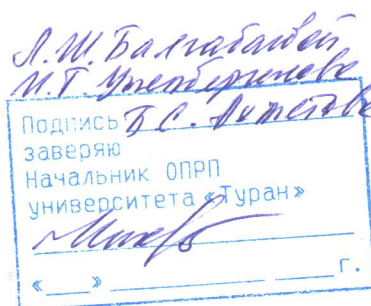 Л.Ш. Балгабаевой
И.Т. Утепбергенова
Подпись Б.С. Ахметова
заверяю
Начальник ОПРП
университета «Туран»
«___» ____________ ____ г.